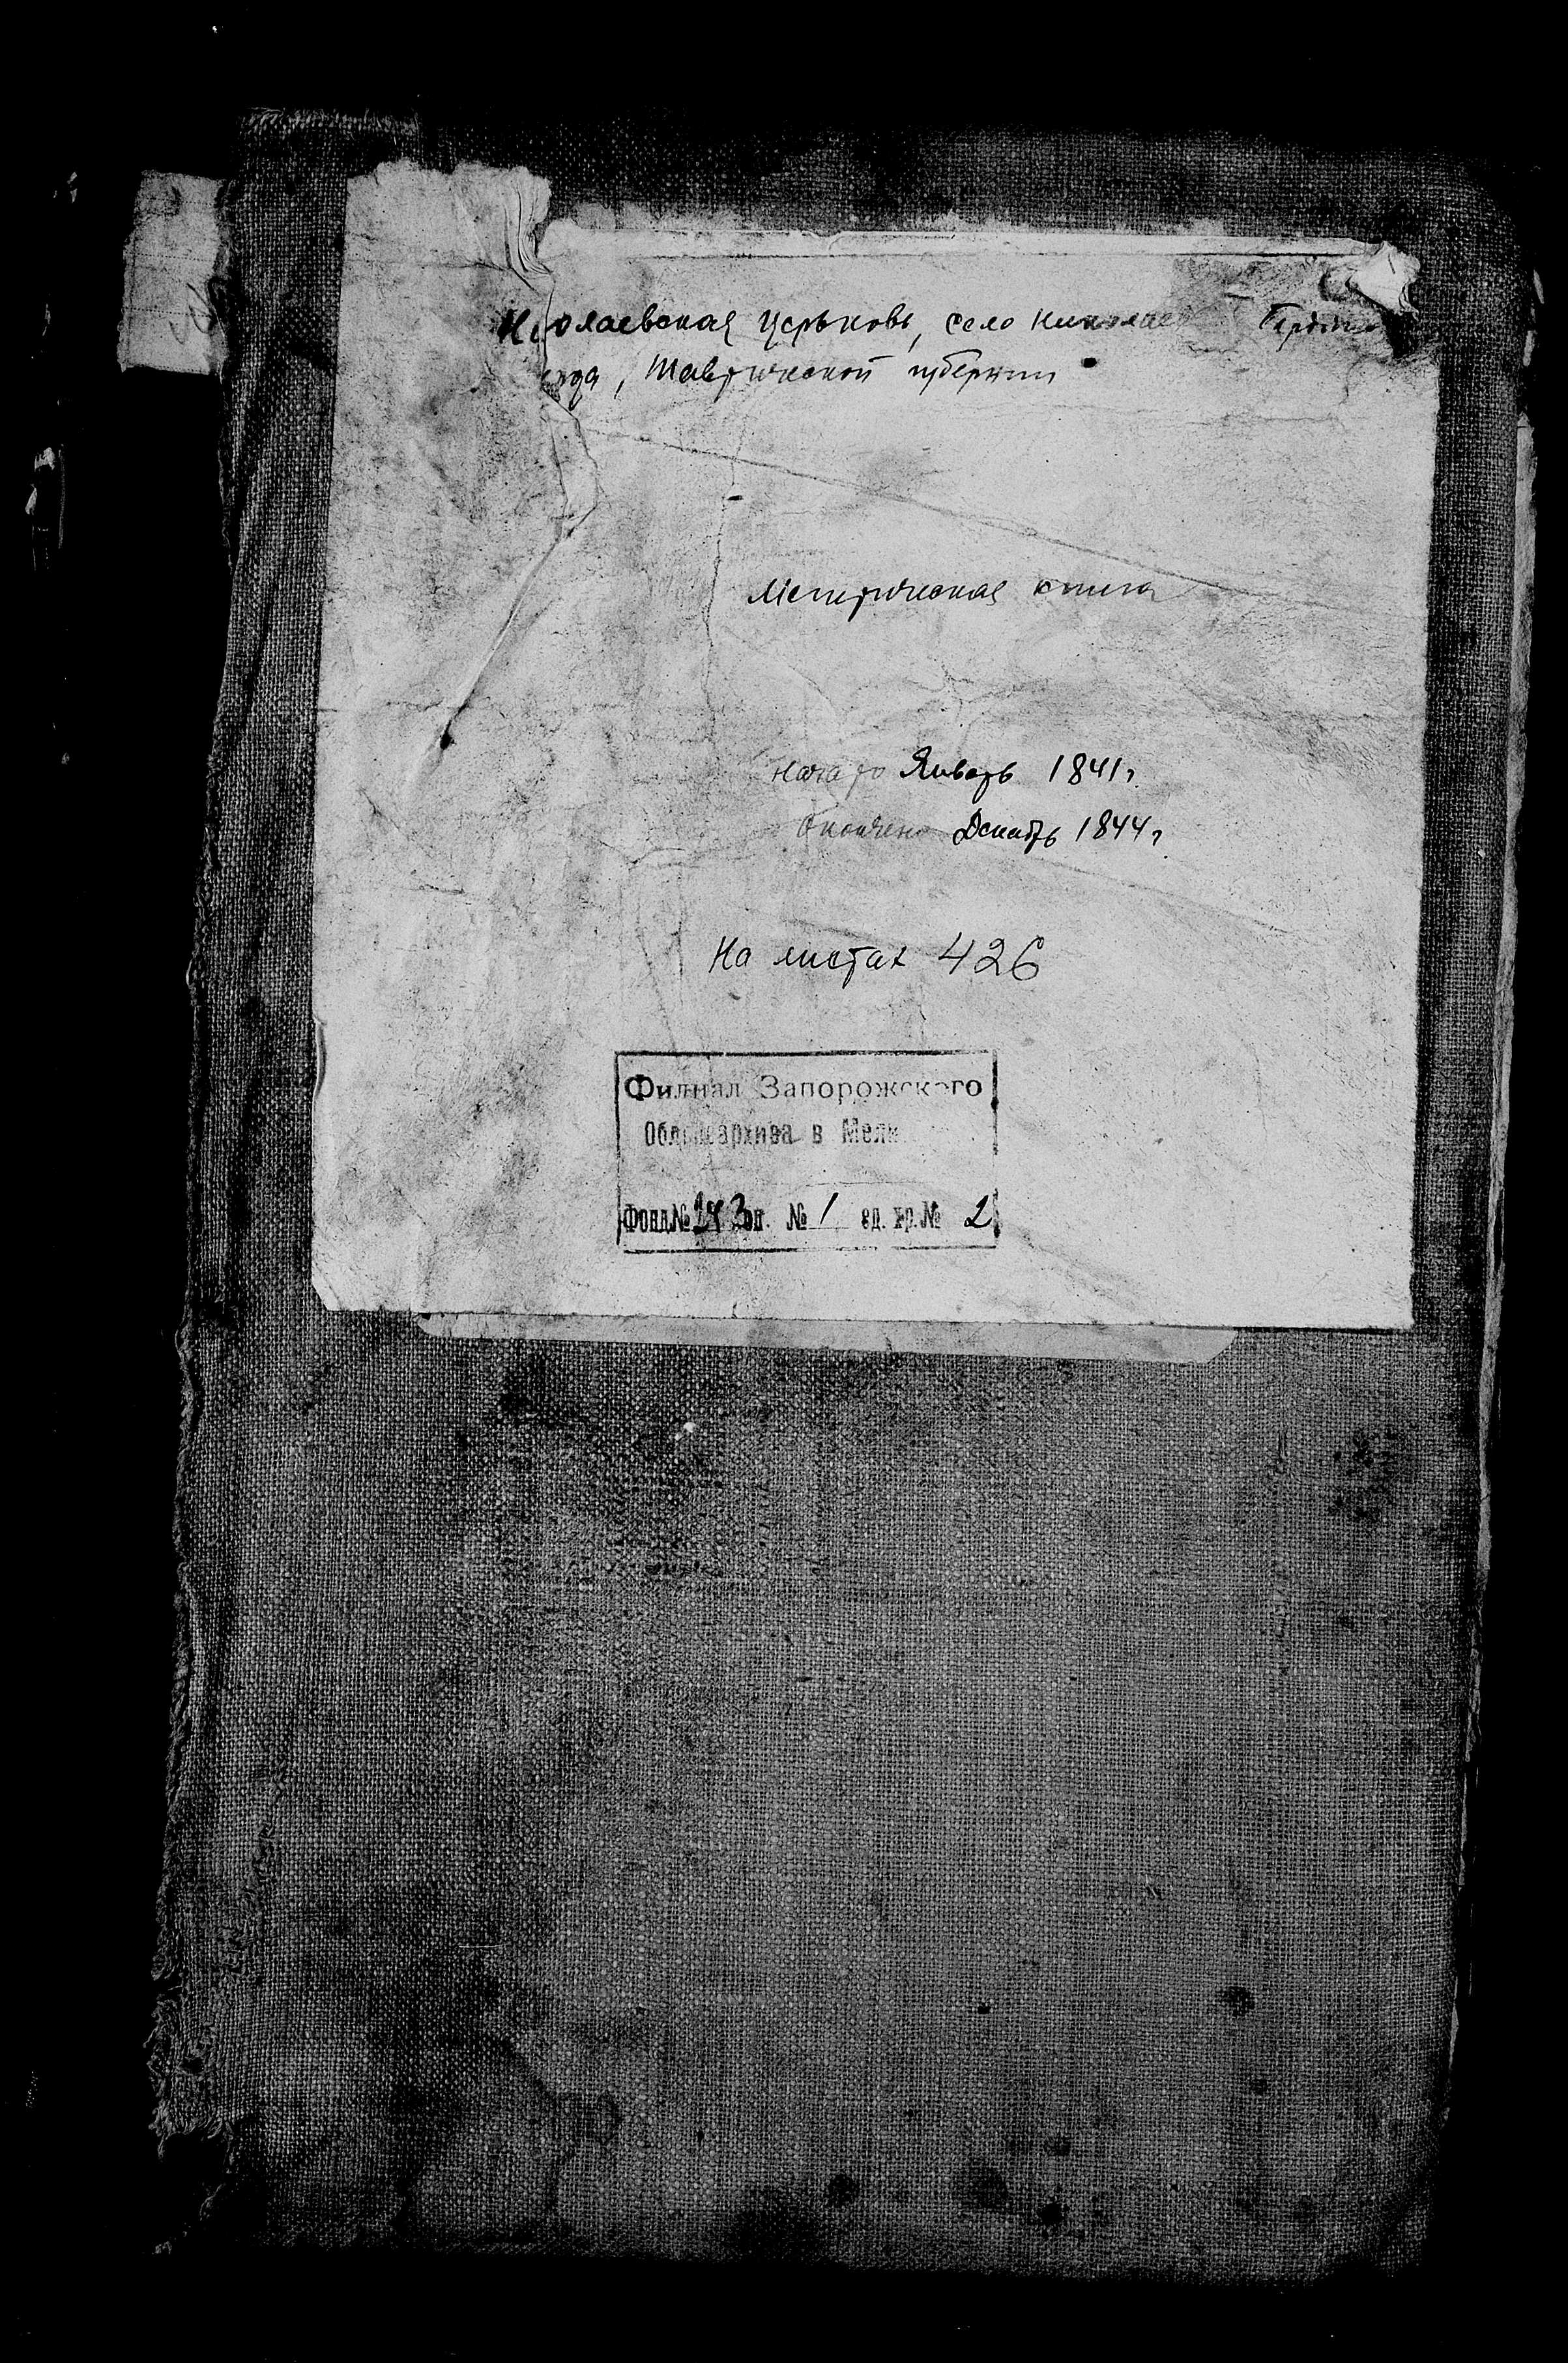 Николаевская церковь, село Николае Бердян
езда, Таврической губернии
Метрическая книга
Начато Январь 1841г.
Окончено Декабрь 1844г.
На листах 426
Филиал Запорожского
Облгосархива в Мели
Фонд № 243 оп. № 1 ед. хр. № 2